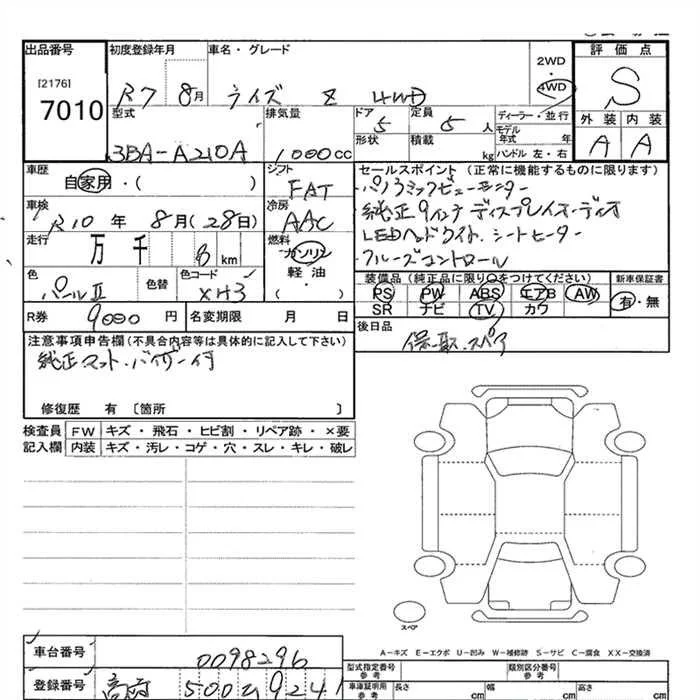 出品番号 初度登録年月 車名・グレード 2WD 評価点
[2176] 4WD S
7010 R7 8月 ライズ Z 4WD
型式 排気量 ドア 定員 ディーラー・並行 外装 内装
5 5人 モデル年式 年 A A
3BA-A210A 1000cc 形状 積載 kg ハンドル 左・右
車歴 シフト セールスポイント(正常に機能するものに限ります)
自家用・( ) FAT パノラミックビューモニター
車検 冷房 純正9インチディスプレイオーディオ
R10年 8月(28日) AAC LEDヘッドライト.シートヒーター
走行 燃料 クルーズコントロール
万 千 8 km ガソリン
軽油
( )
色 色替 色コード 装備品(純正品に限り○をつけてください) 新車保証書
パールⅡ XH3 PS PW ABS エアB AW 有・無
SR ナビ TV カワ
R券 9000円 名変期限 月 日 後日品
保.取.スペア
注意事項申告欄(不具合内容等は具体的に記入して下さい)
純正マット.バイザー付
修復歴 有 〔箇所 〕
検査員 FW キズ・飛石・ヒビ割・リペア跡・×要
記入欄 内装 キズ・汚レ・コゲ・穴・スレ・キレ・破レ
スペア
A-キズ E-エクボ U-凹み W-補修跡 S-サビ C-腐食 XX-交換済
車台番号 0098296
型式指定番号 参考 類別区分番号 参考
登録番号 500 9241
車庫証明用 参考 長さ cm 幅 cm 高さ cm